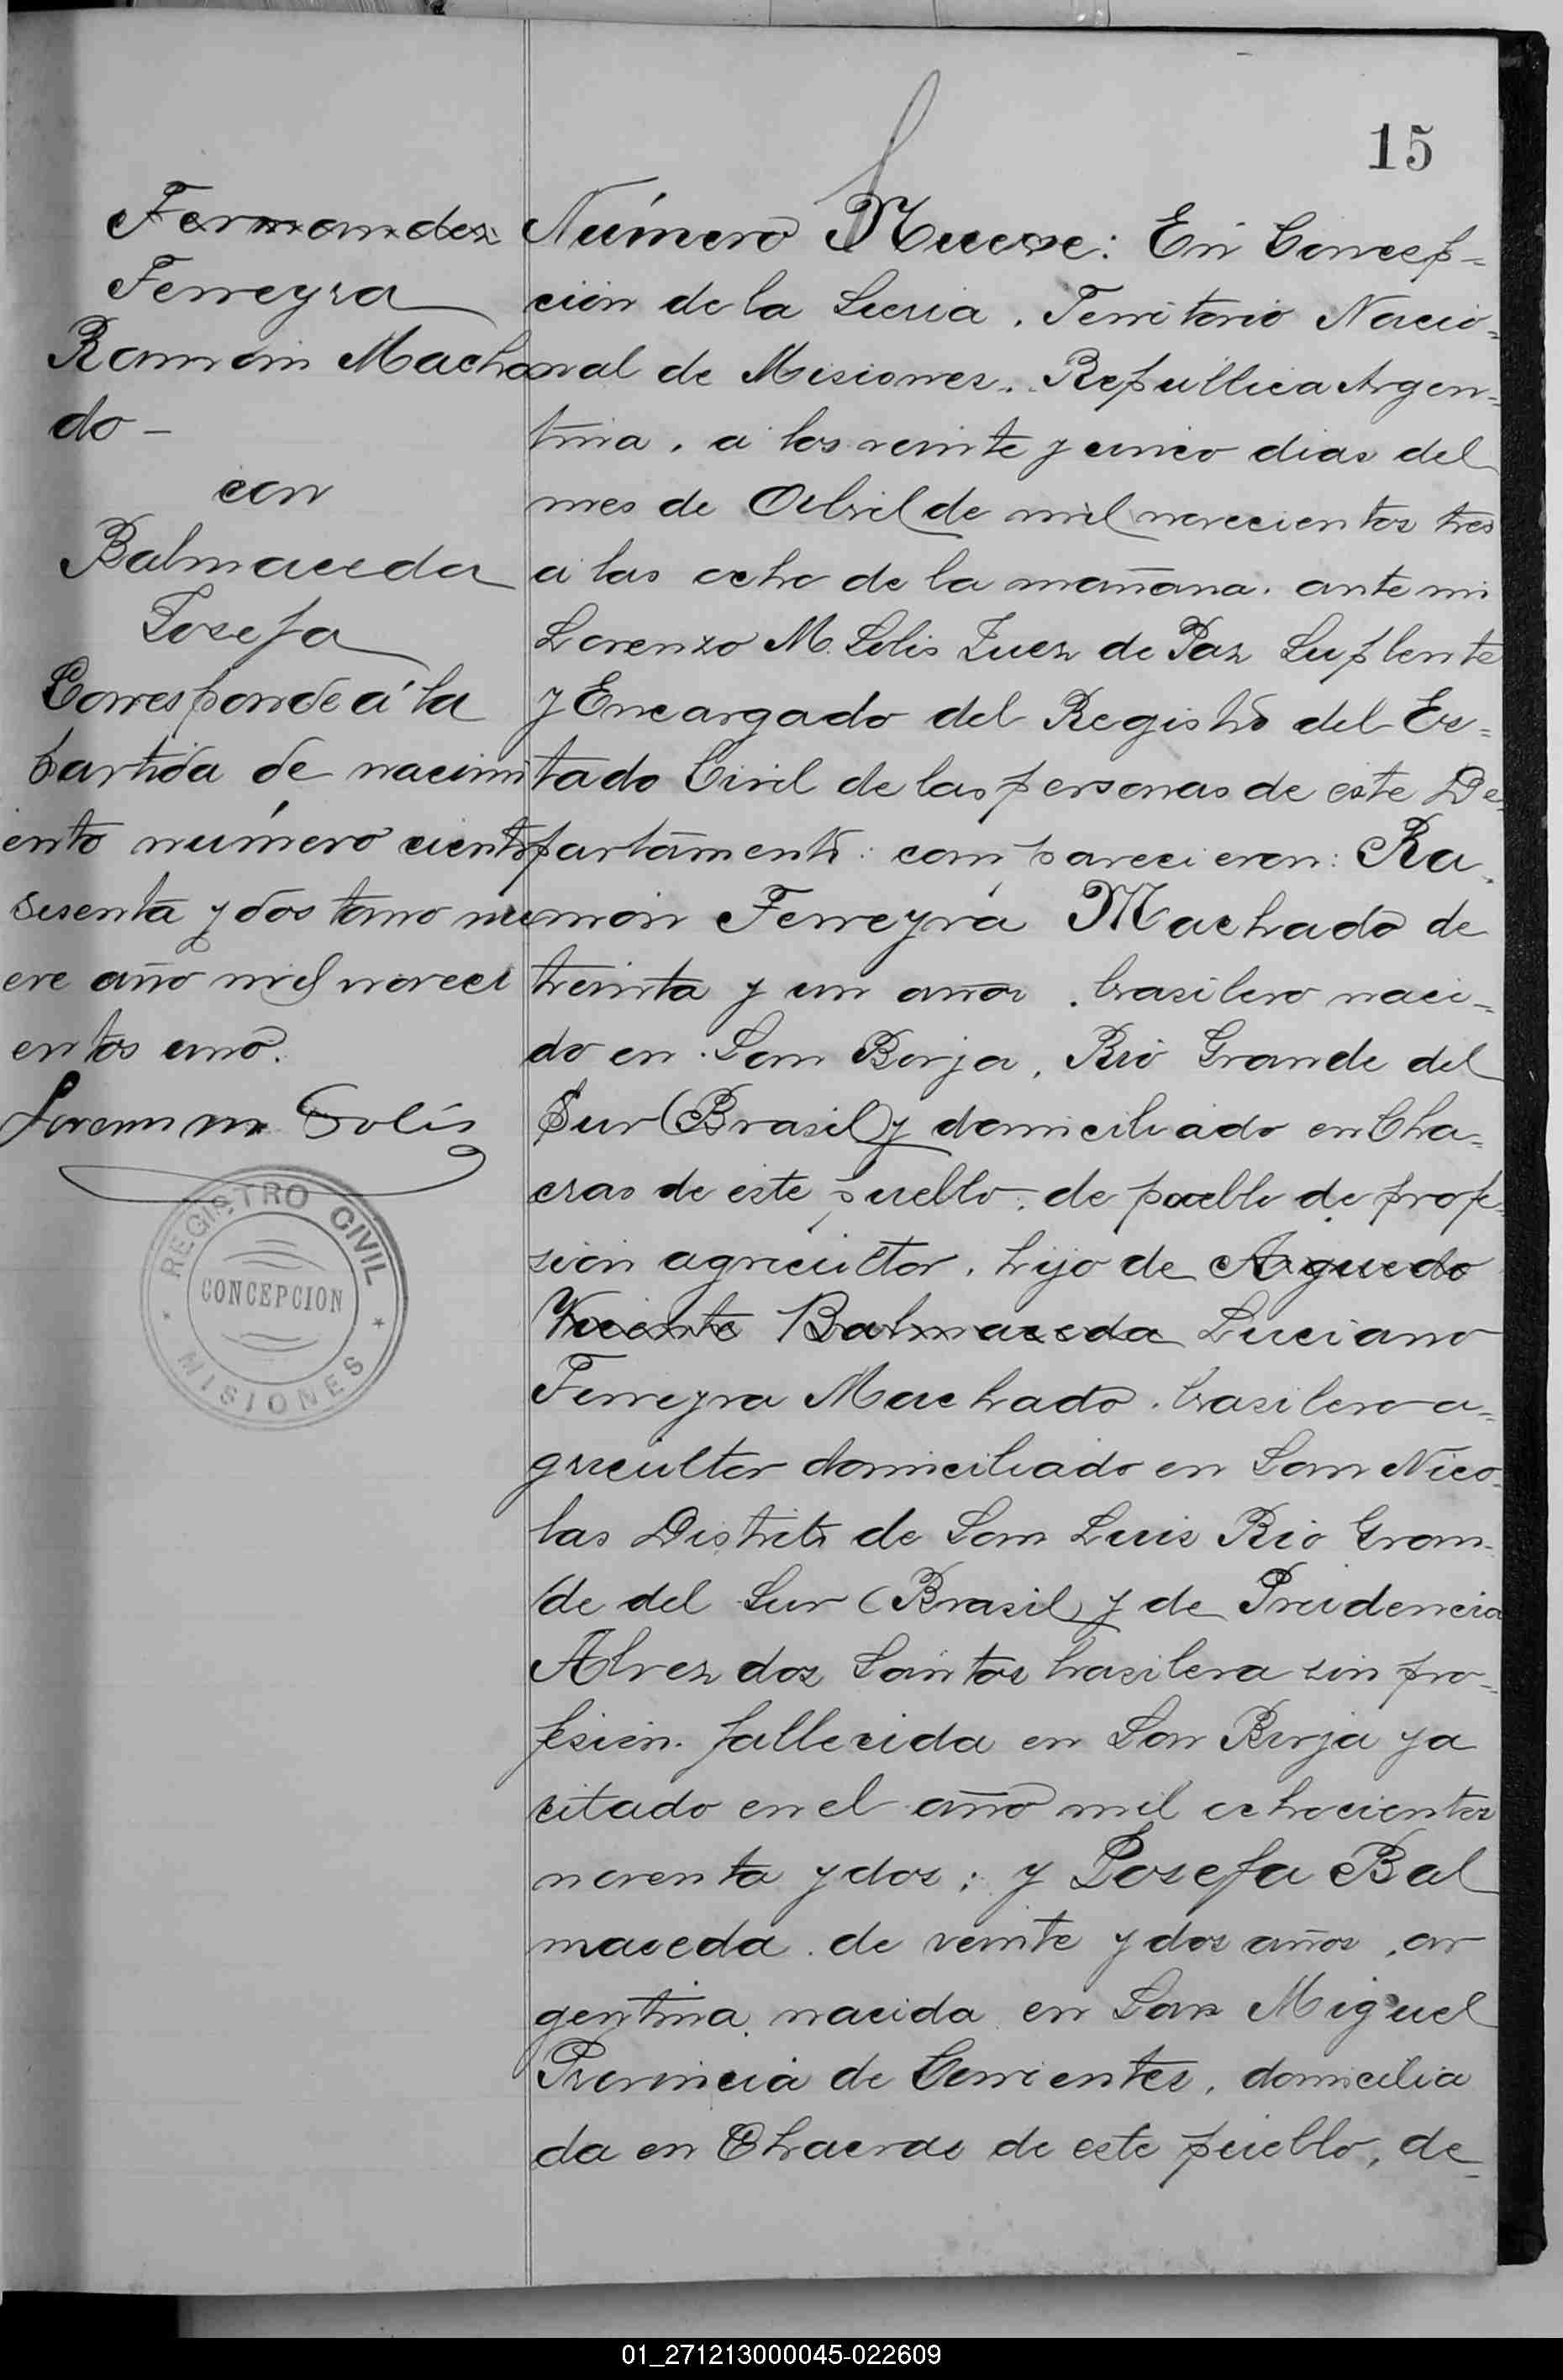 15
Fernandez
Ferreyra
Ramón Macha
do -
con
Balmaceda
Josefa
Corresponde á la
partida de nacimi
ento número ciento
sesenta y dos tomo nu
eve año mil noveci
entos uno.
Lorenzo M. Solis
REGISTRO CIVIL
CONCEPCION
MISIONES
Número Nueve: En Concep-
ción de la Sierra, Territorio Nacio-
nal de Misiones, República Argen-
tina, a los veinte y cinco dias del
mes de Abril de mil novecientos tres
a las ocho de la mañana, ante mi
Lorenzo M. Solis Juez de Paz Suplente
y Encargado del Registro del Es-
tado Civil de las personas de este De-
partamento: comparecieron: Ra-
món Ferreyra Machado de
treinta y un años, brasilero naci-
do en San Borja, Rio Grande del
Sur (Brasil) y domiciliado en Cha-
cras de este pueblo, de pueblo de profe-
sión agricultor, hijo de Aguedo
Vicente Balmaceda Luciano
Ferreyra Machado, brasilero a-
gricultor domiciliado en San Nico-
las Distrito de San Luis Rio Gran-
de del Sur (Brasil) y de Pruidencia
Alvez dos Santos brasilera sin pro-
fesión, fallecida en San Borja ya
citado en el año mil ochocientos
noventa y dos; y Josefa Bal
maceda de veinte y dos años, ar
gentina, nacida en San Miguel
Provincia de Corrientes, domicilia
da en Chacras de este pueblo, de-
01_271213000045-022609